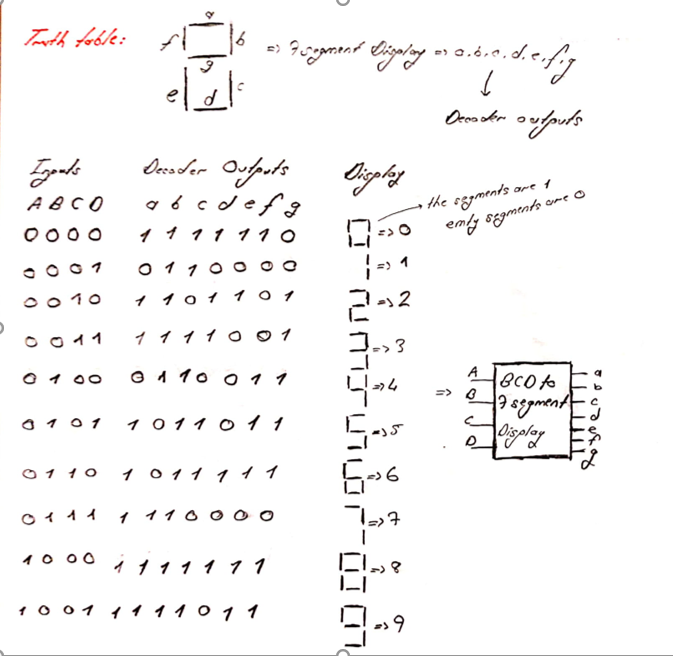 Truth table:
a
f b
g
e d c
=> 7 segment Display => a.b.c.d.e.f.g
Decoder outputs
Inputs Decoder Outputs Display
A B C D a b c d e f g
the segments are 1
emty segments are 0
0 0 0 0 1 1 1 1 1 1 0 => 0
0 0 0 1 0 1 1 0 0 0 0 => 1
0 0 1 0 1 1 0 1 1 0 1 => 2
0 0 1 1 1 1 1 1 0 0 1 => 3
0 1 0 0 0 1 1 0 0 1 1 => 4
0 1 0 1 1 0 1 1 0 1 1 => 5
0 1 1 0 1 0 1 1 1 1 1 => 6
0 1 1 1 1 1 1 0 0 0 0 => 7
1 0 0 0 1 1 1 1 1 1 1 => 8
1 0 0 1 1 1 1 1 0 1 1 => 9
=>
A
B
C
D
BCD to
7 segment
Display
a
b
c
d
e
f
g